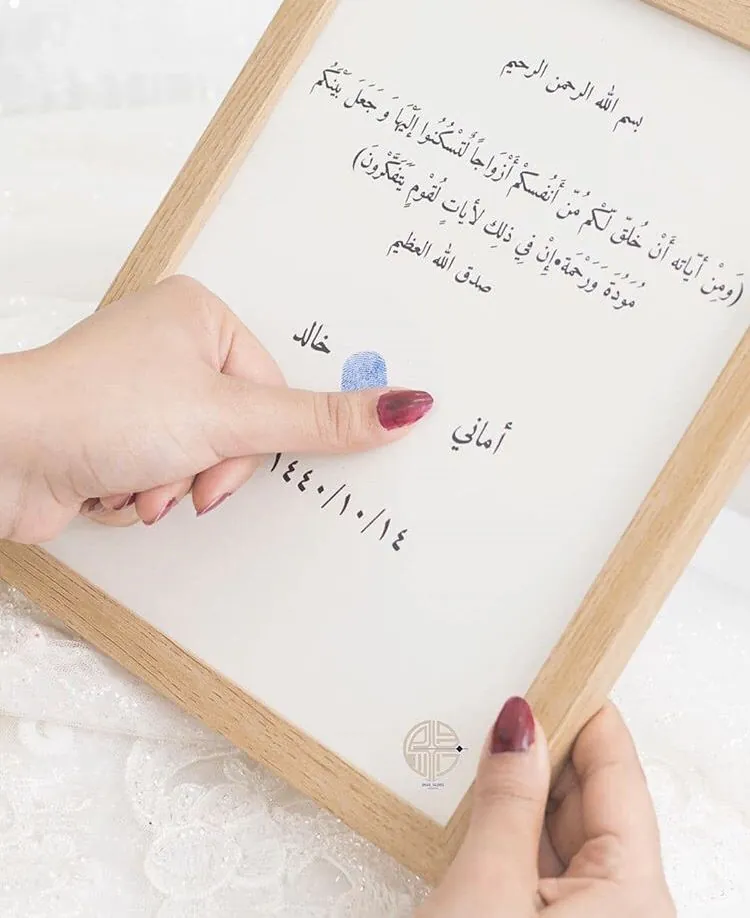 بسم الله الرحمن الرحيم
(ومِنْ أيّاته أَنْ خُلقّ لّكُم مُّن أَنُفسكُم أَزْوَاجاً لُتْسكُنُوا إلَيهَا وَ جَعَلَ بَيْنَكُم
مَوُدَّةَ وَرَحْمَة•إنْ فِي ذلِكَ لأياتٍ لُقومٍ يَتَفَكَّرُونَ)
صدق الله العظيم
خالد
أماني
١٤٤٠/١٠/١٤